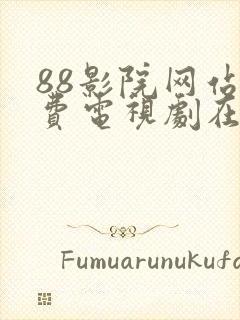 88影院网佔
費電視劇在
Fumuarunukufa